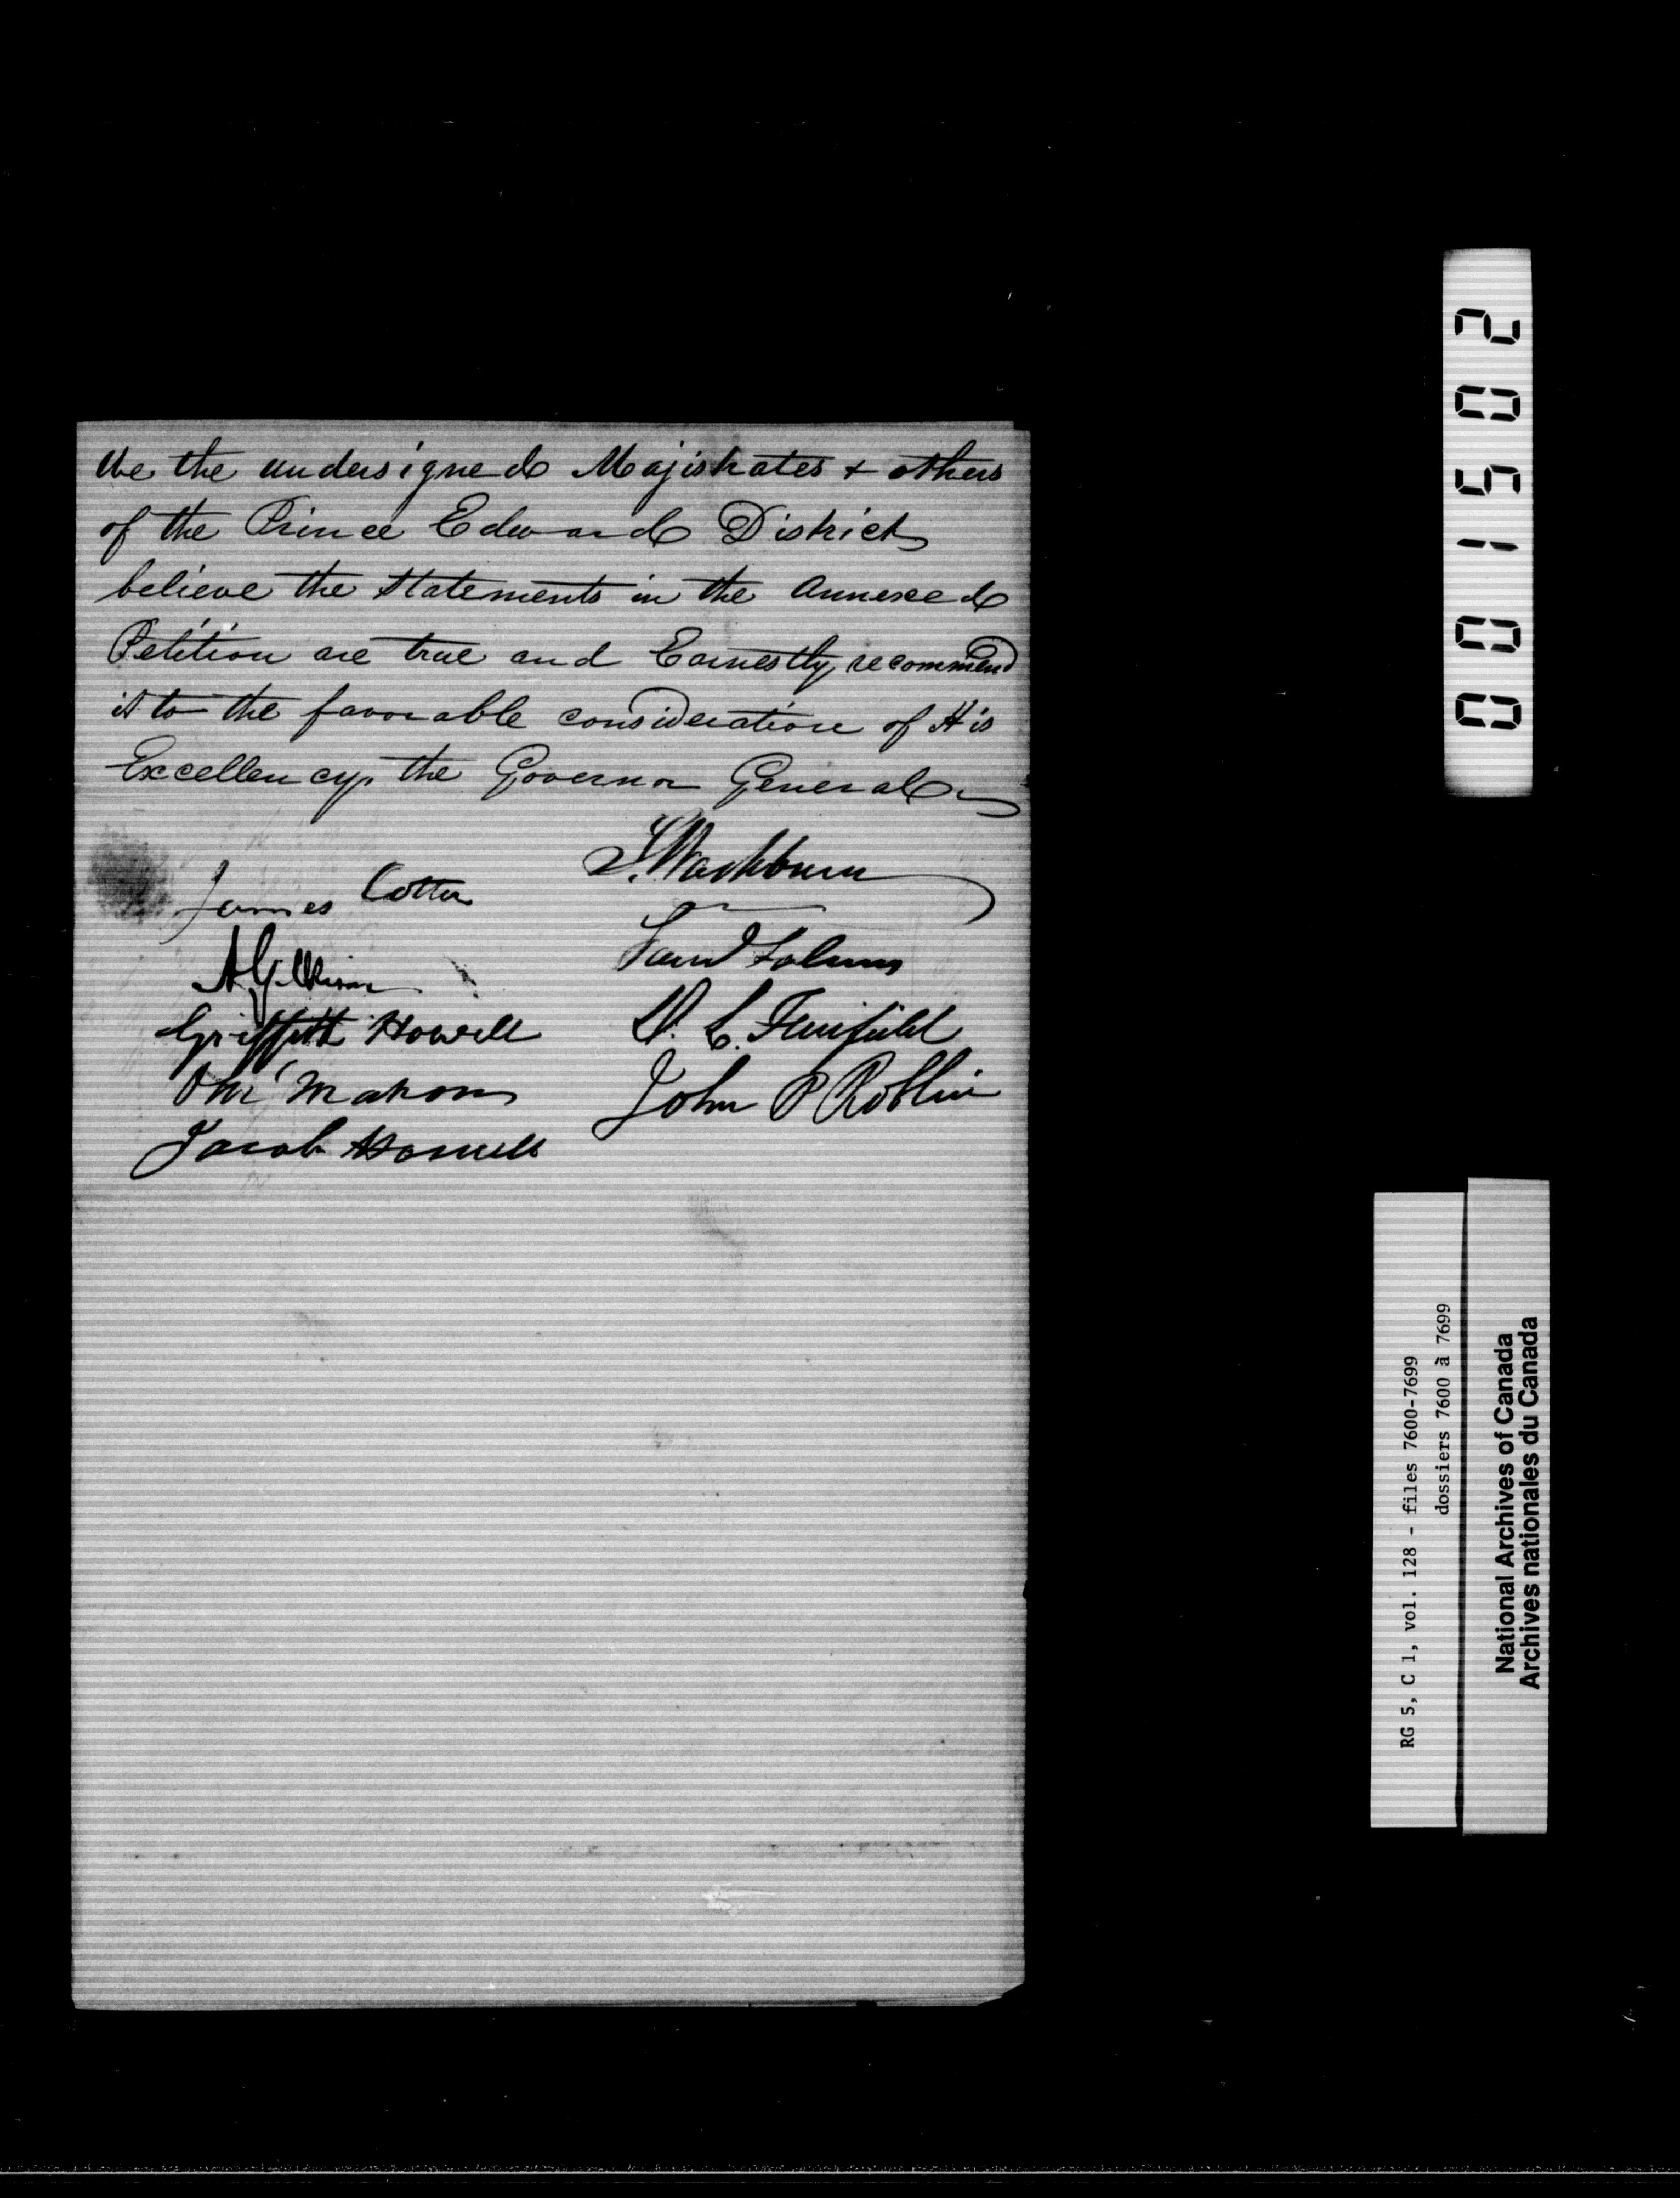 We the undersigned Majistrates + others
of the Prince Edward District
believe the Statements in the Annexed
Petition are true and Earnestly recommend
it to the favorable consideration of His
Excellency the Governor General
S. Washburn
James Cotter
Griffith Howell
D. C. Fairfield
John P Roblin
Jacob Howell
001502
RG 5, C 1, vol. 128 - files 7600-7699
dossiers 7600 à 7699
National Archives of Canada
Archives nationales du Canada